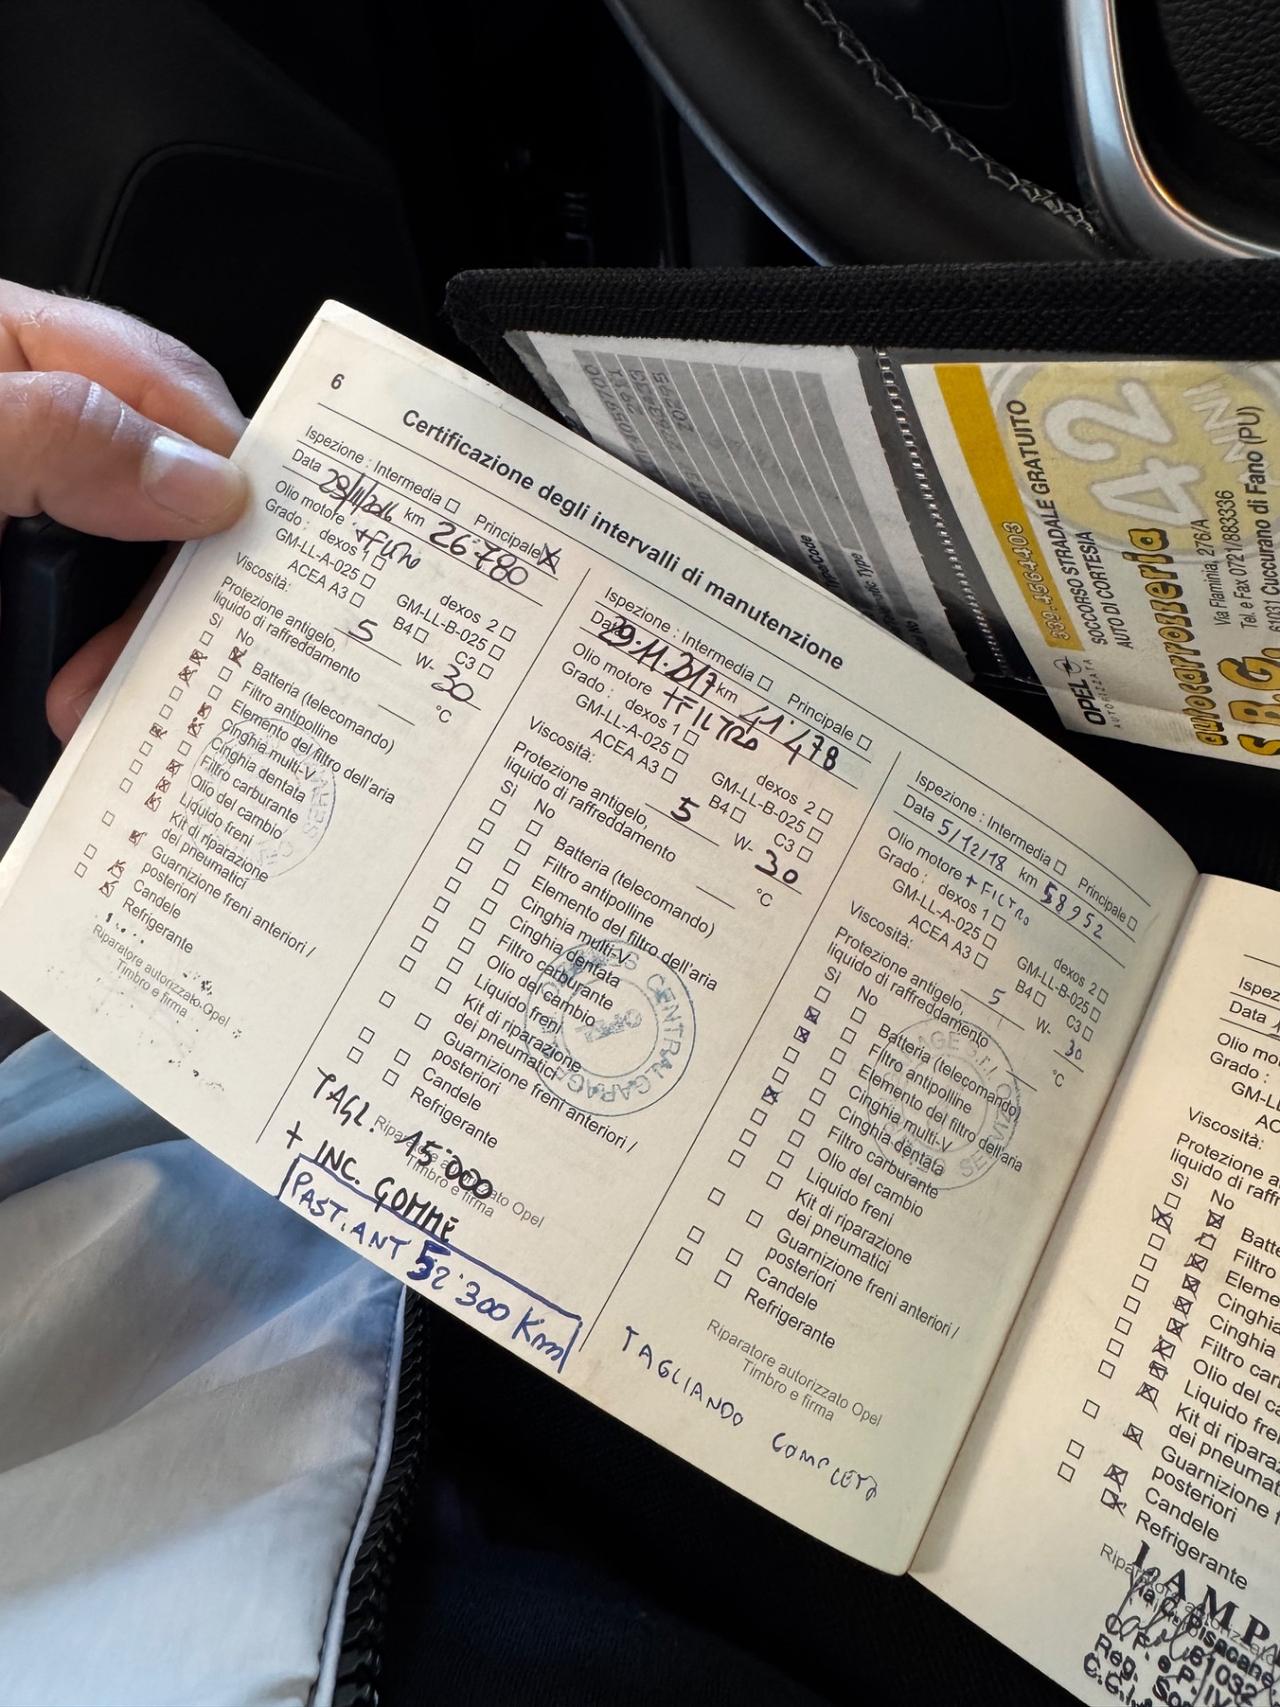 6
Certificazione degli intervalli di manutenzione
Ispezione : Intermedia □ Principale
Data 28/11/2016 km 26.780
Olio motore + FILTRO
Grado : dexos 1 □ dexos 2 □
GM-LL-A-025 □ GM-LL-B-025 □
ACEA A3 □ B4 □ C3 □
Viscosità: 5 W- 30
Protezione antigelo,
liquido di raffreddamento °C
Sì No
Batteria (telecomando)
Filtro antipolline
Elemento del filtro dell'aria
Cinghia multi-V
Cinghia dentata
Filtro carburante
Olio del cambio
Liquido freni
Kit di riparazione
dei pneumatici
Guarnizione freni anteriori /
posteriori
Candele
Refrigerante
Riparatore autorizzato Opel
Timbro e firma
Ispezione : Intermedia □ Principale □
Data 29.11.2017 km 41'478
Olio motore + FILTRO
Grado : dexos 1 □ dexos 2 □
GM-LL-A-025 □ GM-LL-B-025 □
ACEA A3 □ B4 □ C3 □
Viscosità: 5 W- 30
Protezione antigelo,
liquido di raffreddamento °C
Sì No
Batteria (telecomando)
Filtro antipolline
Elemento del filtro dell'aria
Cinghia multi-V
Cinghia dentata
Filtro carburante
Olio del cambio
Liquido freni
Kit di riparazione
dei pneumatici
Guarnizione freni anteriori /
posteriori
Candele
Refrigerante
OPEL
CENTRALGARAGE
Riparatore autorizzato Opel
Timbro e firma
TAGL. 15'000
+ INC. GOMME
PAST. ANT 52'300 Km
Ispezione : Intermedia □ Principale □
Data 5/12/18 km 58952
Olio motore + FILTRO
Grado : dexos 1 □ dexos 2 □
GM-LL-A-025 □ GM-LL-B-025 □
ACEA A3 □ B4 □ C3 □
Viscosità: 5 W- 30
Protezione antigelo,
liquido di raffreddamento °C
Sì No
Batteria (telecomando)
Filtro antipolline
Elemento del filtro dell'aria
Cinghia multi-V
Cinghia dentata
Filtro carburante
Olio del cambio
Liquido freni
Kit di riparazione
dei pneumatici
Guarnizione freni anteriori /
posteriori
Candele
Refrigerante
Riparatore autorizzato Opel
Timbro e firma
TAGLIANDO COMPLETO
Ispez
Data
Olio mo
Grado :
GM-LL
AC
Viscosità:
Protezione a
liquido di raff
Sì No
Batte
Filtro
Eleme
Cinghia
Cinghia
Filtro car
Olio del ca
Liquido fren
Kit di ripara
dei pneumati
Guarnizione f
posteriori
Candele
Refrigerante
LAMP
Via C. Pisacane
61032
339.4564403
SOCCORSO STRADALE GRATUITO
AUTO DI CORTESIA
42
NNI
OPEL
AUTORIZZATA
autocarrozzeria
S.B.G.
Via Flaminia, 276/A
Tel. e Fax 0721/883336
61031 Cuccurano di Fano (PU)